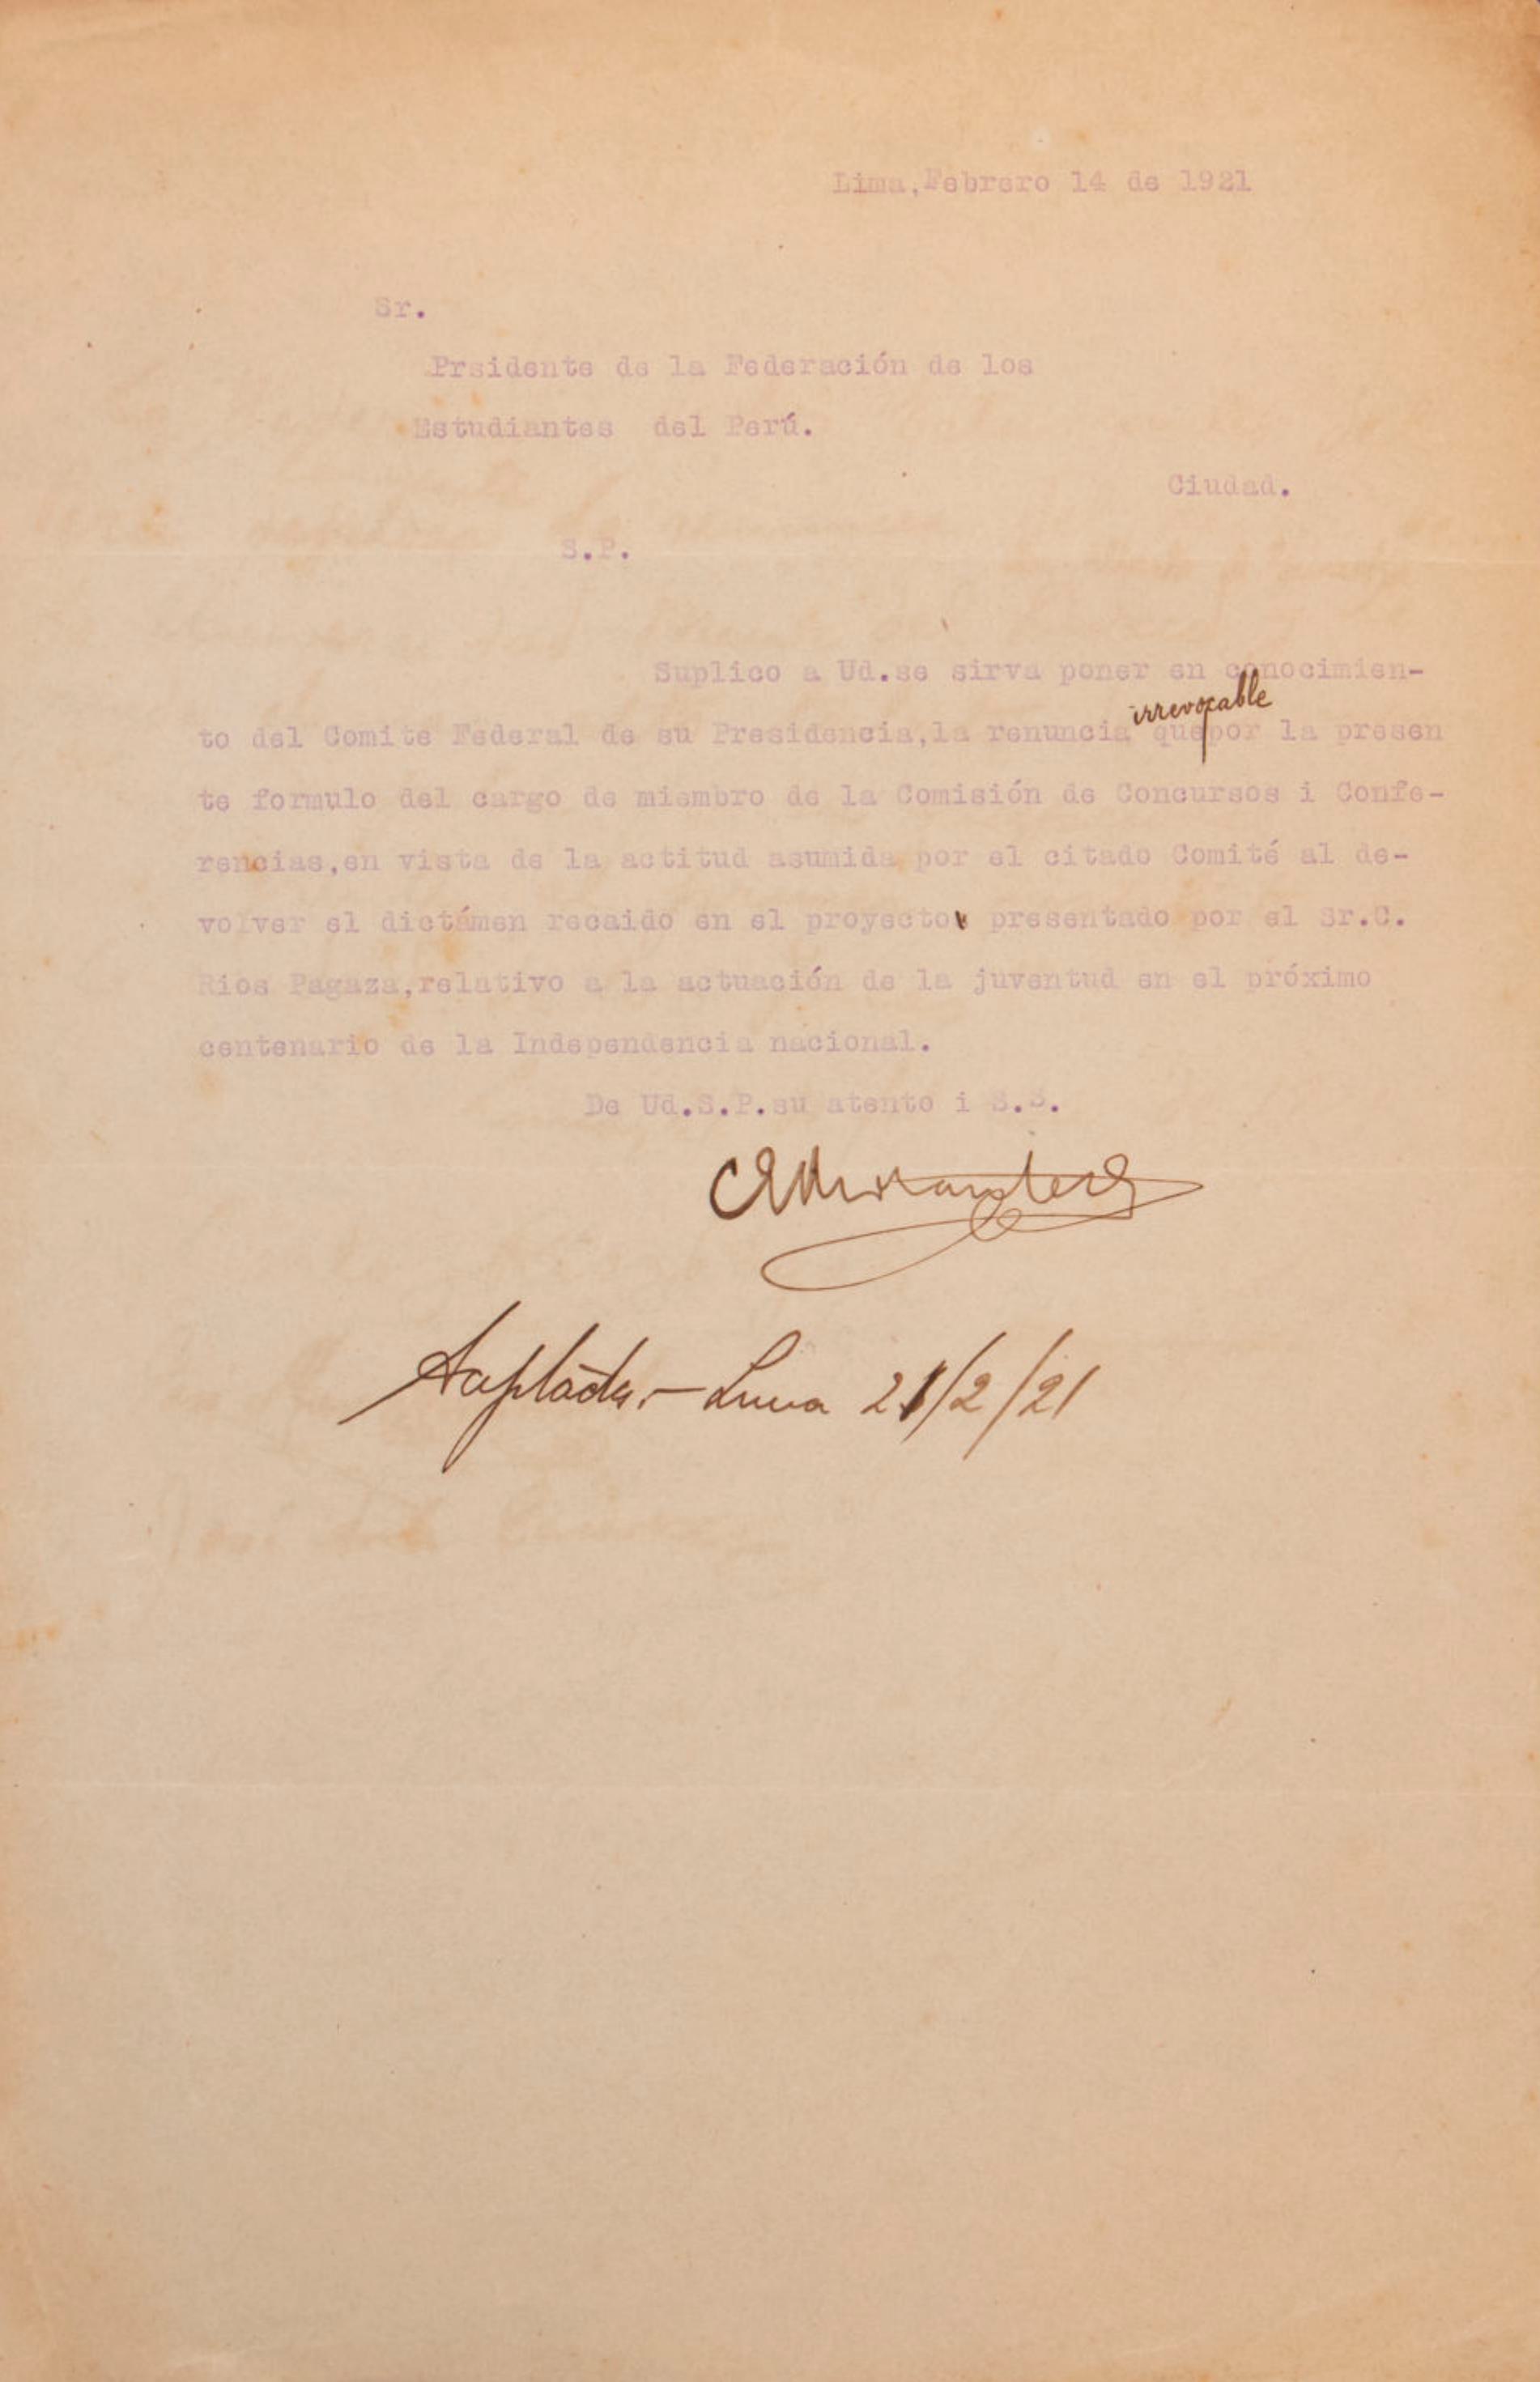 Lima,Febrero 14 de 1921
Sr.
Prsidente de la Federación de los
Estudiantes del Perú.
Ciudad.
S.P.
Suplico a Ud.se sirva poner en conocimien-
irrevocable
to del Comite Federal de su Presidencia,la renuncia que por la presen
te formulo del cargo de miembro de la Comisión de Concursos i Confe-
rencias,en vista de la actitud asumida por el citado Comité al de-
volver el dictámen recaido en el proyecto presentado por el Sr.C.
Rios Pagaza,relativo a la actuación de la juventud en el próximo
centenario de la Independencia nacional.
De Ud.S.P.su atento i S.S.
Aceptada.- Lima 21/2/21